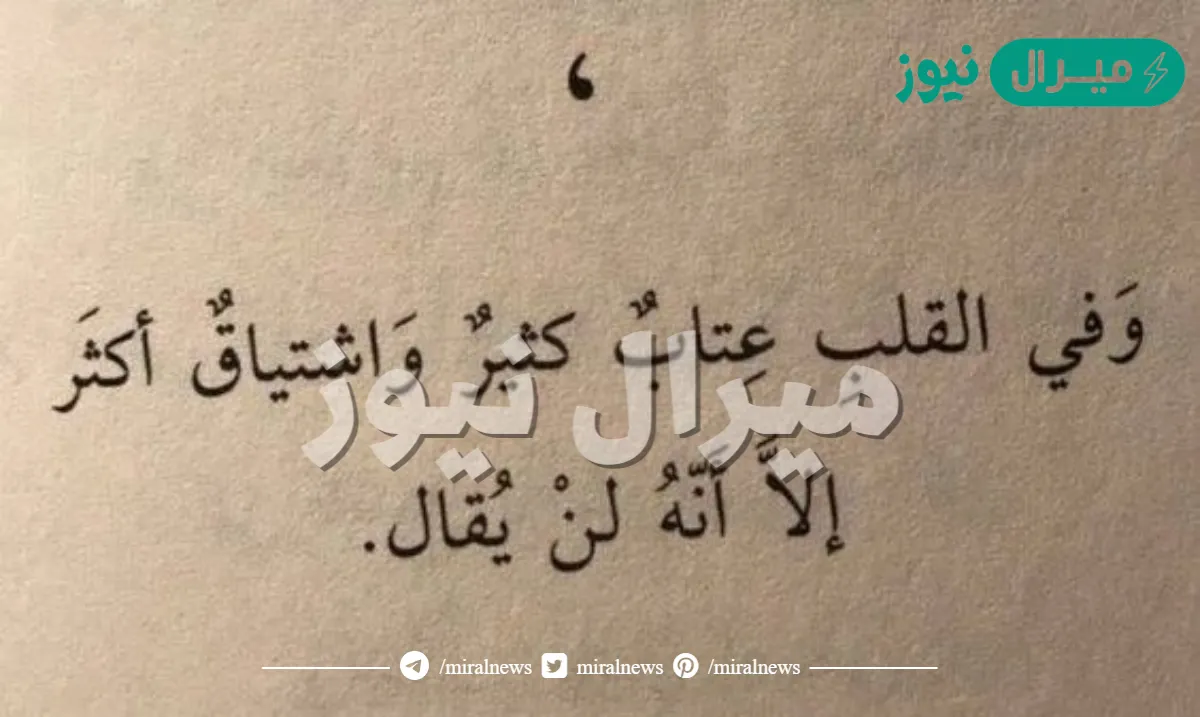 ميرال نيوز
،
وَفي القلبِ عِتابٌ كثيرٌ وَاشتياقٌ أكثَر
ميرال نيوز
إلاَّ أَنّهُ لنْ يُقال.
/miralnews miralnews /miralnews